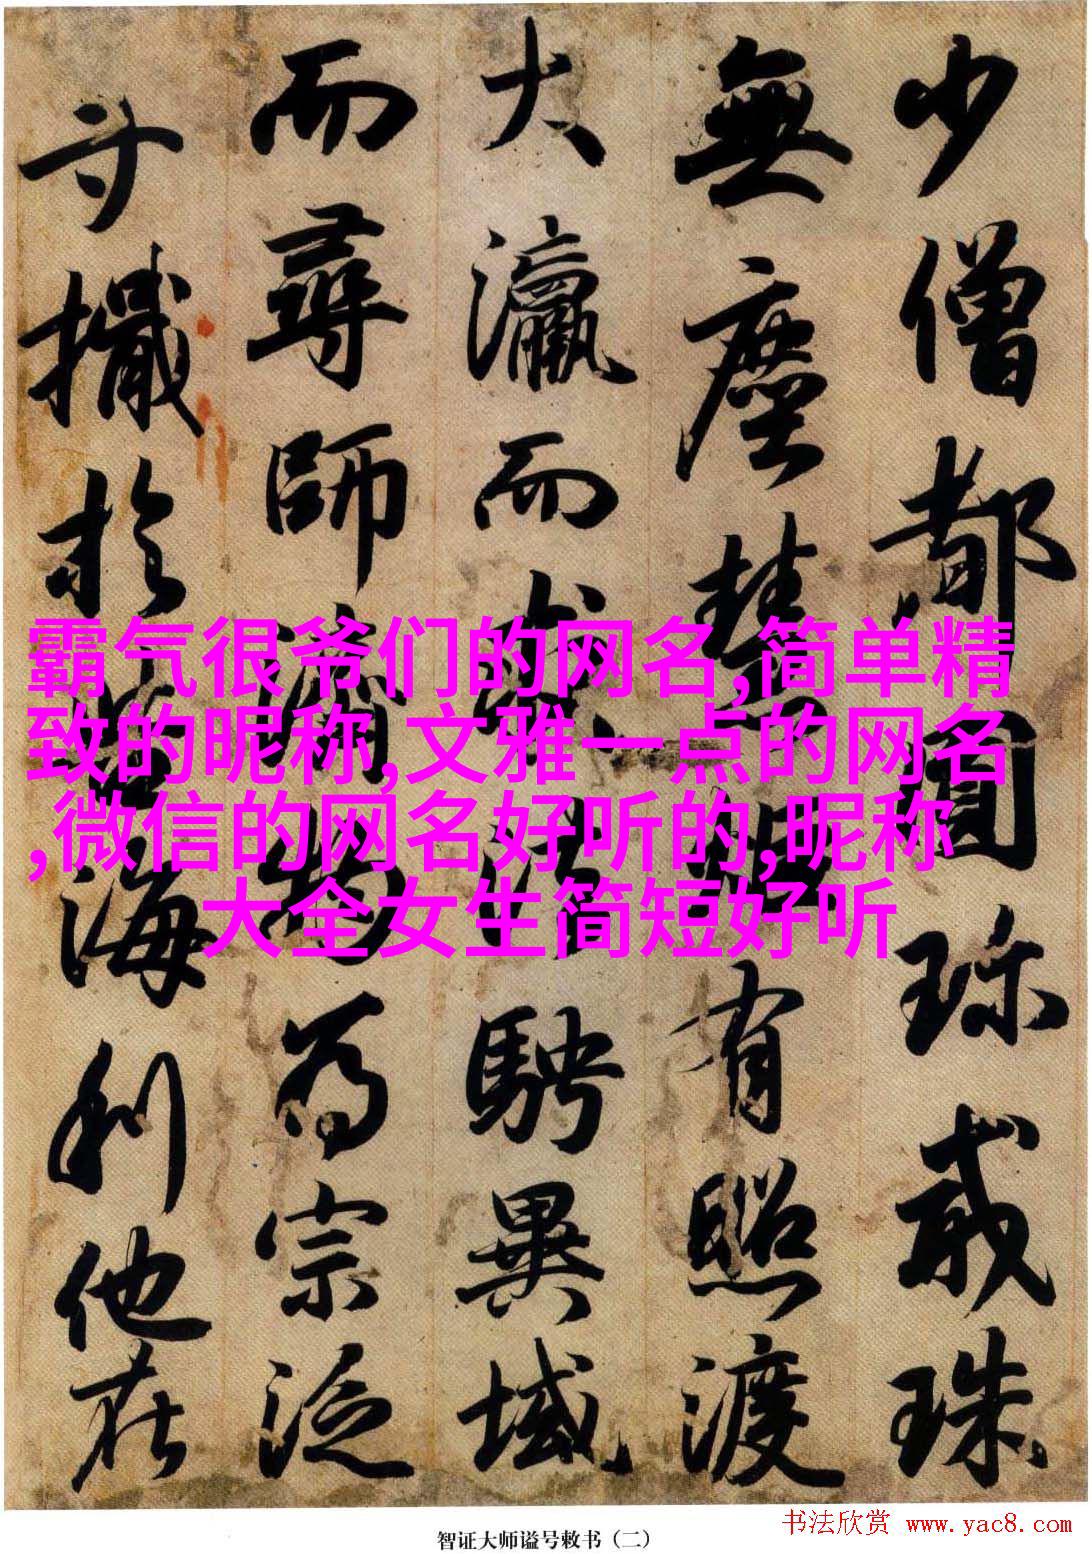 少僧都圓珍戒珠
無塵慧有照渡
大瀛而求法騁異域
而尋師濟物為宗泛
寸於苦海利他在
霸气很爷们的网名,简单精
致的昵称,文雅一点的网名
,微信的网名好听的,昵称
大全女生简短好听
智证大师谥号敕书（二）
书法欣赏 www.yac8.com